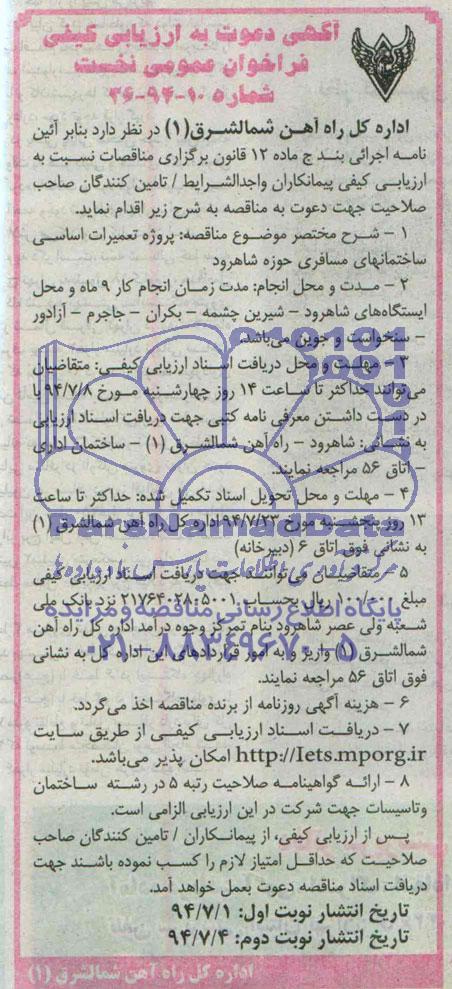 آگهی دعوت به ارزیابی کیفی
فراخوان عمومی نخست
شماره ۱۰-۹۴-۳۶
اداره کل راه آهن شمالشرق(۱) در نظر دارد بنابر آئین
نامه اجرائی بند ج ماده ۱۲ قانون برگزاری مناقصات نسبت به
ارزیابی کیفی پیمانکاران واجدالشرایط / تامین کنندگان صاحب
صلاحیت جهت دعوت به مناقصه به شرح زیر اقدام نماید.
۱ - شرح مختصر موضوع مناقصه: پروژه تعمیرات اساسی
ساختمانهای مسافری حوزه شاهرود
۲ - مدت و محل انجام: مدت زمان انجام کار ۹ ماه و محل
ایستگاه‌های شاهرود - شیرین چشمه - بکران - جاجرم - آزادور
- سنخواست و جوین می‌باشد.
۳ - مهلت و محل دریافت اسناد ارزیابی کیفی: متقاضیان
می‌توانند حداکثر تا ساعت ۱۴ روز چهارشنبه مورخ ۹۴/۷/۸ با
در دست داشتن معرفی نامه کتبی جهت دریافت اسناد ارزیابی
به نشانی: شاهرود - راه آهن شمالشرق (۱) - ساختمان اداری
- اتاق ۵۶ مراجعه نمایند.
۴ - مهلت و محل تحویل اسناد تکمیل شده: حداکثر تا ساعت
۱۳ روز پنجشنبه مورخ ۹۴/۷/۲۳ اداره کل راه آهن شمالشرق (۱)
به نشانی فوق اتاق ۶ (دبیرخانه)
۵ - متقاضیان می‌توانند جهت دریافت اسناد ارزیابی کیفی
مبلغ ۱۰۰/۰۰۰ ریال بحساب ۲۱۷۶۴۰۲۸۰۵۰۰۱ نزد بانک ملی
شعبه ولی عصر شاهرود بنام تمرکز وجوه درآمد اداره کل راه آهن
شمالشرق (۱) واریز و به امور قراردادهای این اداره کل به نشانی
فوق اتاق ۵۶ مراجعه نمایند.
۶ - هزینه آگهی روزنامه از برنده مناقصه اخذ می‌گردد.
۷ - دریافت اسناد ارزیابی کیفی از طریق سایت
http://Iets.mporg.ir امکان پذیر می‌باشد.
۸ - ارائه گواهینامه صلاحیت رتبه ۵ در رشته ساختمان
وتاسیسات جهت شرکت در این ارزیابی الزامی است.
پس از ارزیابی کیفی، از پیمانکاران / تامین کنندگان صاحب
صلاحیت که حداقل امتیاز لازم را کسب نموده باشند جهت
دریافت اسناد مناقصه دعوت بعمل خواهد آمد.
تاریخ انتشار نوبت اول: ۹۴/۷/۱
تاریخ انتشار نوبت دوم: ۹۴/۷/۴
اداره کل راه آهن شمالشرق (۱)
ParsNamadData
پایگاه اطلاع رسانی مناقصه و مزایده
۰۲۱-۸۸۳۴۹۶۷۰-۵